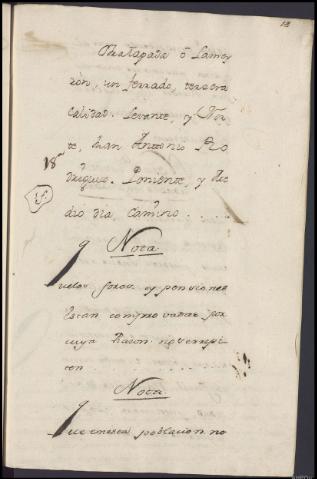 18
Matapada ô Lamei
rón, un ferrado, tercera
Calidad. Levante, y Nor
te, Juan Antonio Ro
driguez. Poniente, y Me
dio dia, Camino.....
18
Nota
q
uelos foros y penciones
estan comprovadas por
cuya Razon no serepi
ten
Nota
q
ue enesta poblacion no